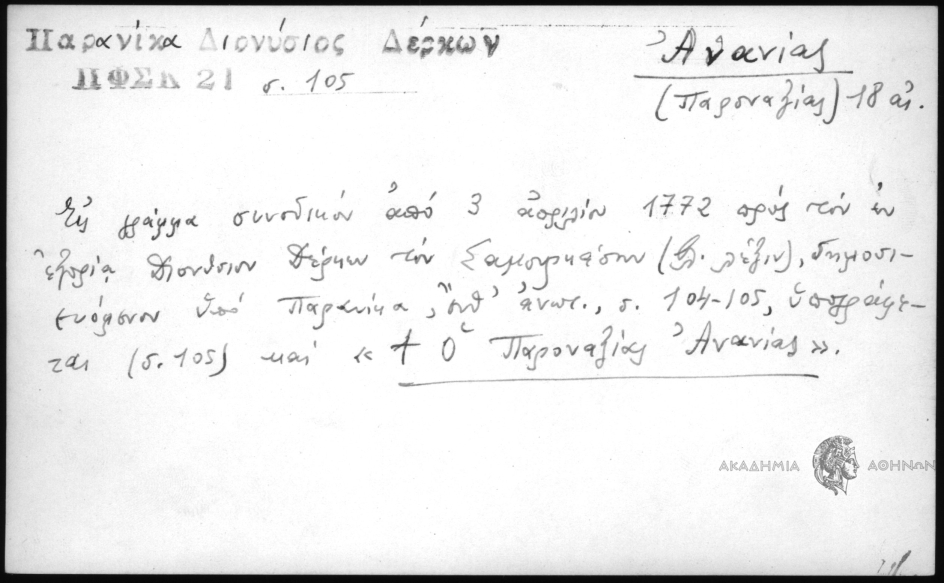 Παρανίκα Διονύσιος Δέρκων
ΠΦΣΚ 21 σ. 105
Ἀνανίας
(Παροναξίας) 18 αἰ.
Εἰς γράμμα συνοδικόν ἀπό 3 ἀπριλίου 1772 πρός τόν ἐν
ἐξορίᾳ Διονύσιον Δέρκων τόν (βλ. λέξιν), δημοσι-
ευόμενον ὑπό Παρανίκα, ἔνθ' ἀνωτ., σ. 104-105, ὑπογράφε-
ται (σ. 105) καί « † Ὁ Παροναξίας Ἀνανίας ».
ΑΚΑΔΗΜΙΑ ΑΘΗΝΩΝ